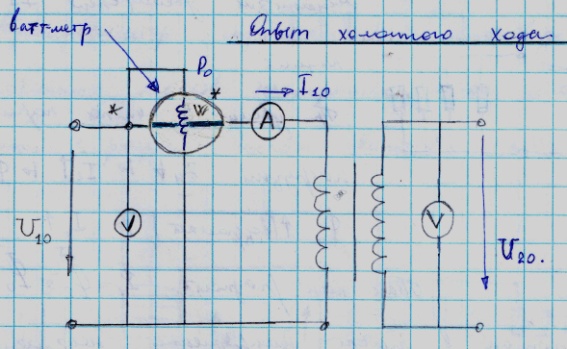 ваттметр
Опыт холостого хода
P₀
* *
W
I₁₀
A
U₁₀
V
V
U₂₀.